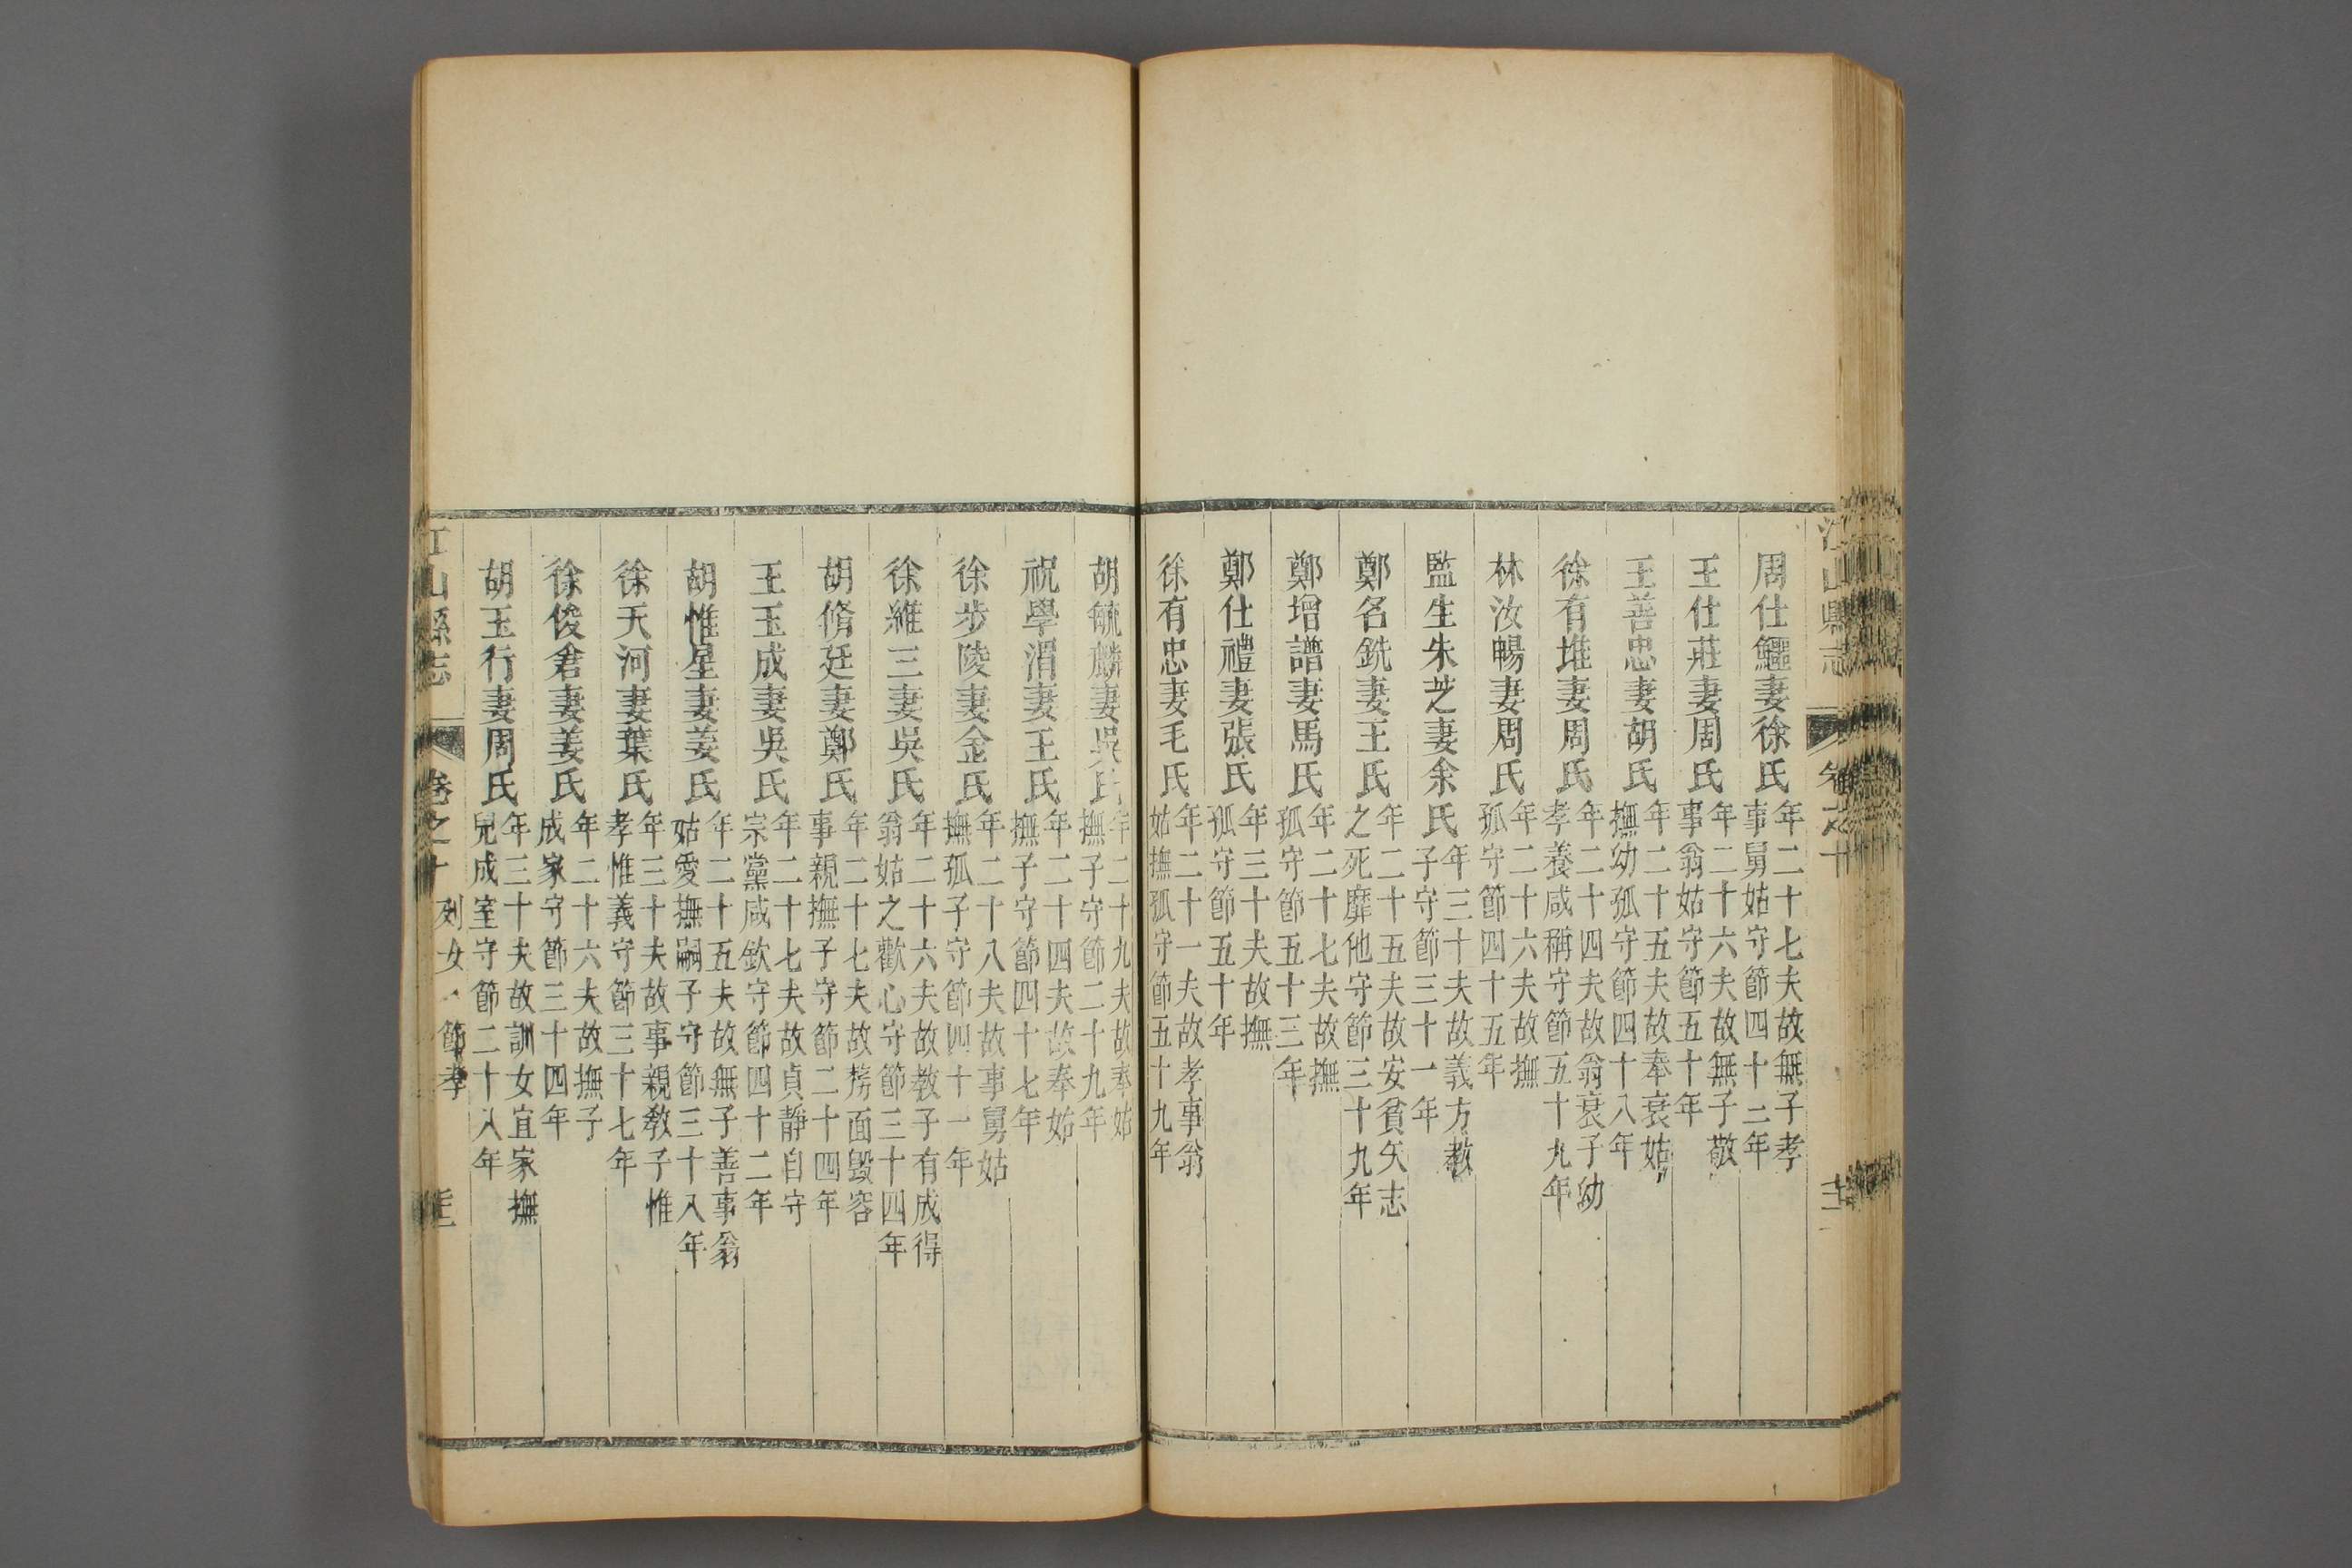 周仕鱷妻徐氏年二十七夫故無子孝
事舅姑守節四十二年
王仕莊妻周氏年二十六夫故無子敬
事翁姑守節五十年
王善忠妻胡氏年二十五夫故奉衰姑
撫幼孤守節四十八年
徐有堆妻周氏年二十四夫故翁衰子幼
孝養咸稱守節五十九年
林汝暢妻周氏年二十六夫故撫
孤守節四十五年
監生朱芝妻余氏年三十夫故義方教
子守節三十一年
鄭名銑妻王氏年二十五夫故安貧矢志
之死靡他守節三十九年
鄭增譜妻馬氏年二十七夫故撫
孤守節五十三年
鄭仕禮妻張氏年三十夫故撫
孤守節五十年
徐有忠妻毛氏年二十一夫故孝事翁
姑撫孤守節五十九年
胡毓麟妻吳氏年二十九夫故奉姑
撫子守節二十九年
祝學湄妻王氏年二十四夫故奉姑
撫子守節四十七年
徐步陵妻金氏年二十八夫故事舅姑
撫孤子守節四十一年
徐維三妻吳氏年二十六夫故教子有成得
翁姑之歡心守節三十四年
胡脩廷妻鄭氏年二十七夫故剺面毀容
事親撫子守節二十四年
王玉成妻吳氏年二十七夫故貞靜自守
宗黨咸欽守節四十二年
胡惟星妻姜氏年二十五夫故無子善事翁
姑愛撫嗣子守節三十八年
徐天河妻葉氏年三十夫故事親教子惟
孝惟義守節三十七年
徐俊倉妻姜氏年二十六夫故撫子
成家守節三十四年
胡玉行妻周氏年三十夫故訓女宜家撫
兒成室守節二十八年
江山縣志 卷之十 列女 節孝